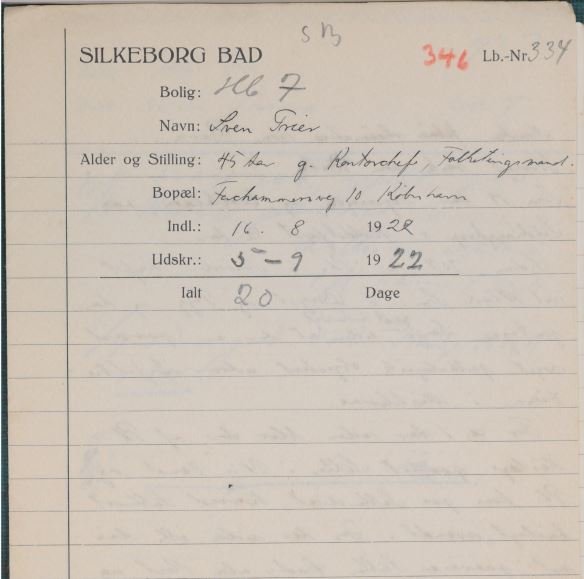 SB
SILKEBORG BAD 346 Lb.-Nr 334
Bolig: Hb 7
Navn: Sven Trier
Alder og Stilling: 45 Aar g. Kontorchef, Folketingsmand.
Bopæl: Fuchammersvej 10 København
Indl.: 16. 8 1922
Udskr.: 5-9 1922
Ialt 20 Dage